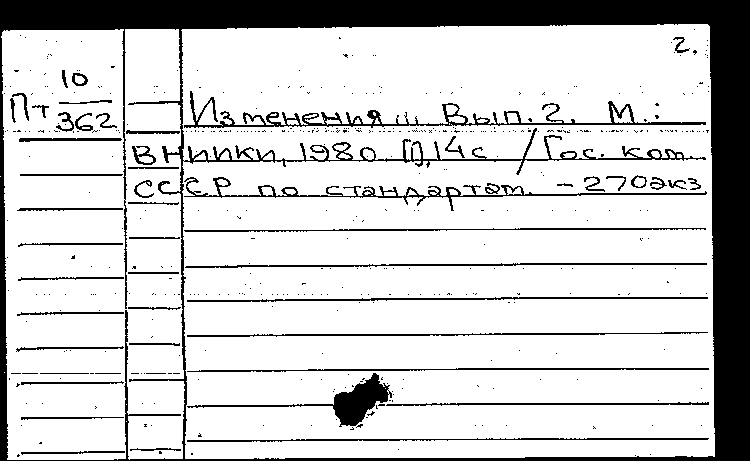 2.
Пт 10/362
Изменения ... Вып. 2. М.:
ВНИИКИ, 1980 [1], 14 с. / Гос. ком.
СССР по стандартам. - 270 экз